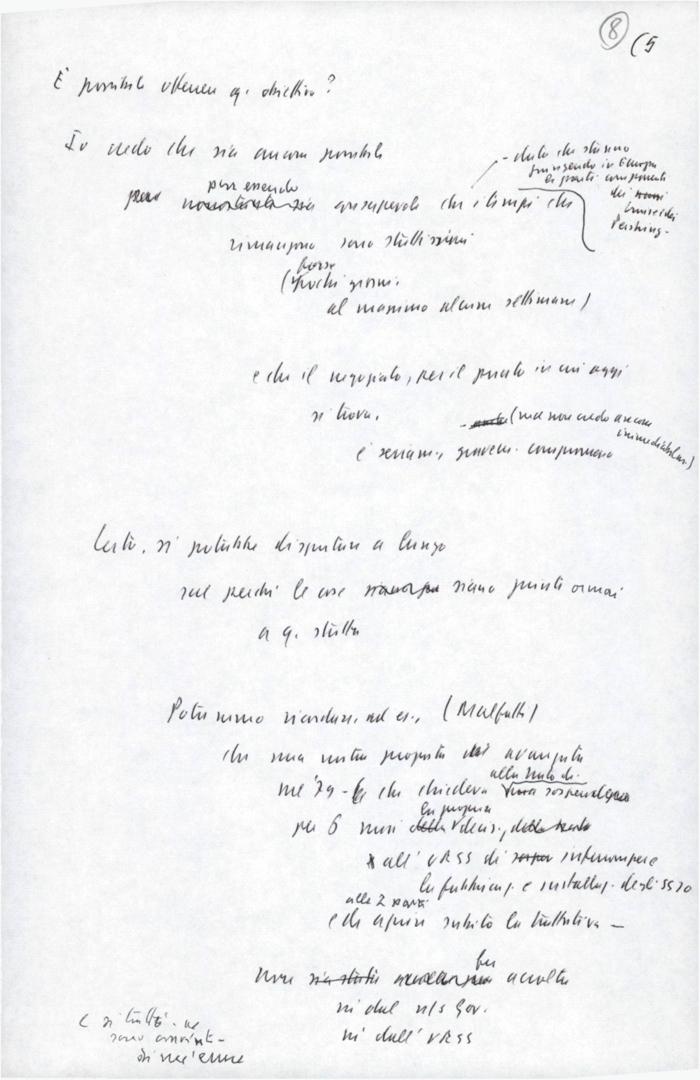 8
(5
È possibile ottenere q. obiettivo?
Io credo che sia ancora possibile
- dato che stanno
giungendo in Europa
le parti componenti
dei
Cruise e dei
Pershing -
pur essendo
però consapevole che i tempi che
rimangono sono strettissimi
forse
(pochi giorni,
al massimo alcune settimane)
e che il negoziato, per il punto in cui oggi
si trova,
(ma non credo ancora
irrimediabilm.)
è seriam., gravem. compromesso
Certo, si potrebbe disputare a lungo
sul perché le cose siano giunte ormai
a q. stretta
Potremmo ricordare, ad es., (Malfatti)
che una nostra proposta avanzata
nel '79 - che chiedeva
alla Nato di sospendere
per 6 mesi la propria decis.,
all'URSS di interrompere
la fabbricaz. e installaz. degli SS20
alle 2 parti
e di aprire subito la trattativa -
non fu accolta
né dal n/s Gov.
né dall'URSS
e si trattò - ne
sono convinto -
di un errore